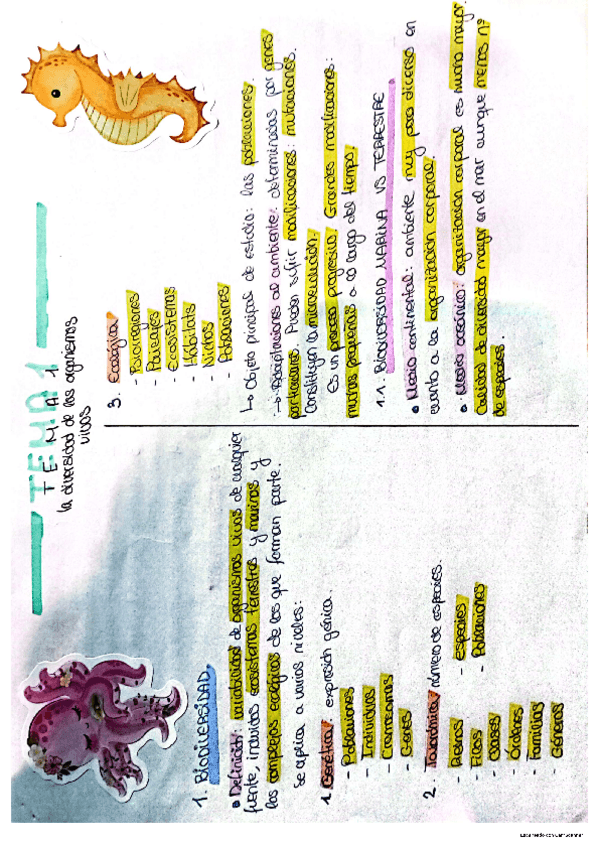 TEMA 1
TEMA 1
la diversidad de los organismos
vivos
1. BIODIVERSIDAD
• Definición: variabilidad de organismos vivos de cualquier
fuente, incluidos ecosistemas terrestres y marinos y
los complejos ecológicos de los que forman parte.
Se aplica a varios niveles:
1. Genética: expresión génica.
- Poblaciones
- Individuos
- Cromosomas
- Genes
2. Taxonómica: número de especies.
- Reinos
- Filos
- Clases
- Órdenes
- Familias
- Géneros
- especies
- Poblaciones
3. Ecológica
- Biorregiones
- Paisajes
- Ecosistemas
- Hábitats
- Nichos
- Poblaciones
↳ Objeto principal de estudio: las poblaciones.
→ Adaptaciones al ambiente: determinadas por genes
particulares. Pueden sufrir modificaciones: mutaciones.
Constituyen la microevolución.
Es un proceso progresivo. Grandes modificaciones:
muchas pequeñas a lo largo del tiempo.
1.1. BIODIVERSIDAD MARINA VS TERRESTRE
• Medio continental: ambiente muy poco diverso en
cuanto a la organización corporal.
• Medio oceánico: organización corporal es mucho mayor.
Calidad de diversidad mayor en el mar aunque menos nº
de especies.